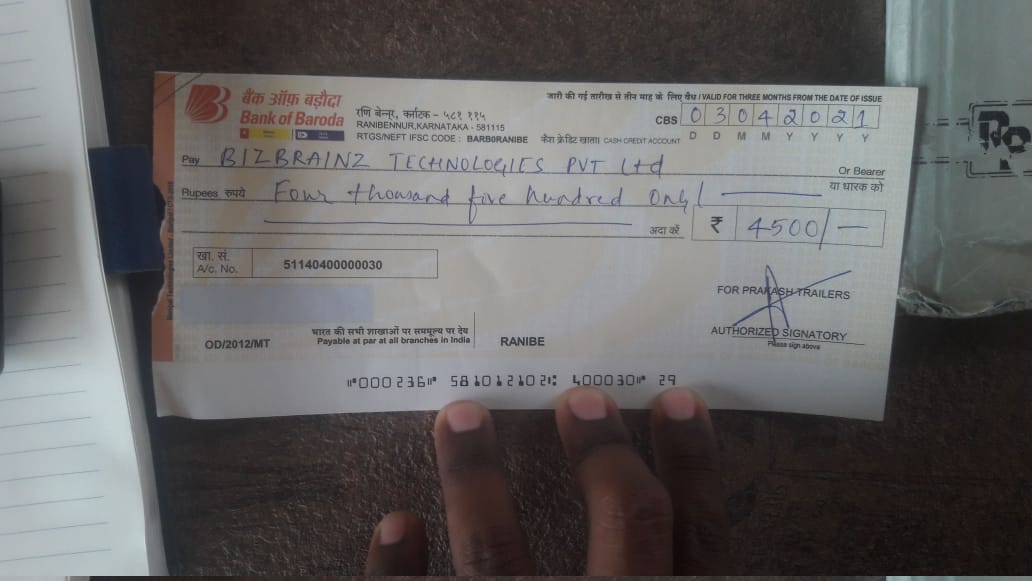 बैंक ऑफ़ बड़ौदा
Bank of Baroda
रणि बेन्नूर, कर्नाटक - ५८१ ११५
RANIBENNUR,KARNATAKA - 581115
RTGS/NEFT IFSC CODE : BARB0RANIBE
जारी की गई तारीख से तीन माह के लिए वैध / VALID FOR THREE MONTHS FROM THE DATE OF ISSUE
CBS 03042021
D D M M Y Y Y Y
कैश क्रेडिट खाता CASH CREDIT ACCOUNT
Pay BIZBRAINZ TECHNOLOGIES PVT Ltd
Or Bearer
या धारक को
Rupees रुपये Four thousand five hundred Only/
अदा करें ₹ 4500/-
खा. सं.
A/c. No. 51140400000030
FOR PRAKASH TRAILERS
AUTHORIZED SIGNATORY
Please sign above
OD/2012/MT
भारत की सभी शाखाओं पर सममूल्य पर देय
Payable at par at all branches in India
RANIBE
⑈000236⑈ 581012102⑆ 400030⑈ 29